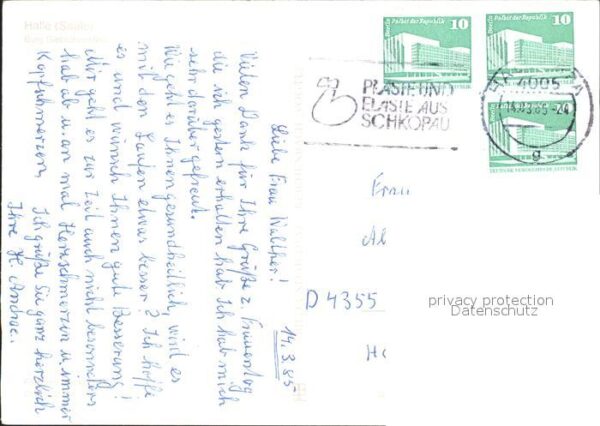 Halle (Saale)
14.3.85
Liebe Frau Walther!
Vielen Dank für Ihre Grüße z. Frauentag
die ich gestern erhalten hab. Ich hab mich
sehr darüber gefreut.
Wie geht es Ihnen gesundheitlich, wird es
mit den Laufen etwas besser? Ich hoffe
es und wünsch Ihnen gute Besserung!
Mir geht es zur Zeit auch nicht besonders
hab ab u. an mal Herzschmerzen u. immer
Kopfschmerzen. Ich grüße Sie ganz herzlich
Ihre H.
Berlin Palast der Republik 10
Berlin Palast der Republik 10
DEUTSCHE DEMOKRATISCHE REPUBLIK
PLASTE UND
ELASTE AUS
SCHKOPAU
4005
g
Frau
D 4355
privacy protection
Datenschutz